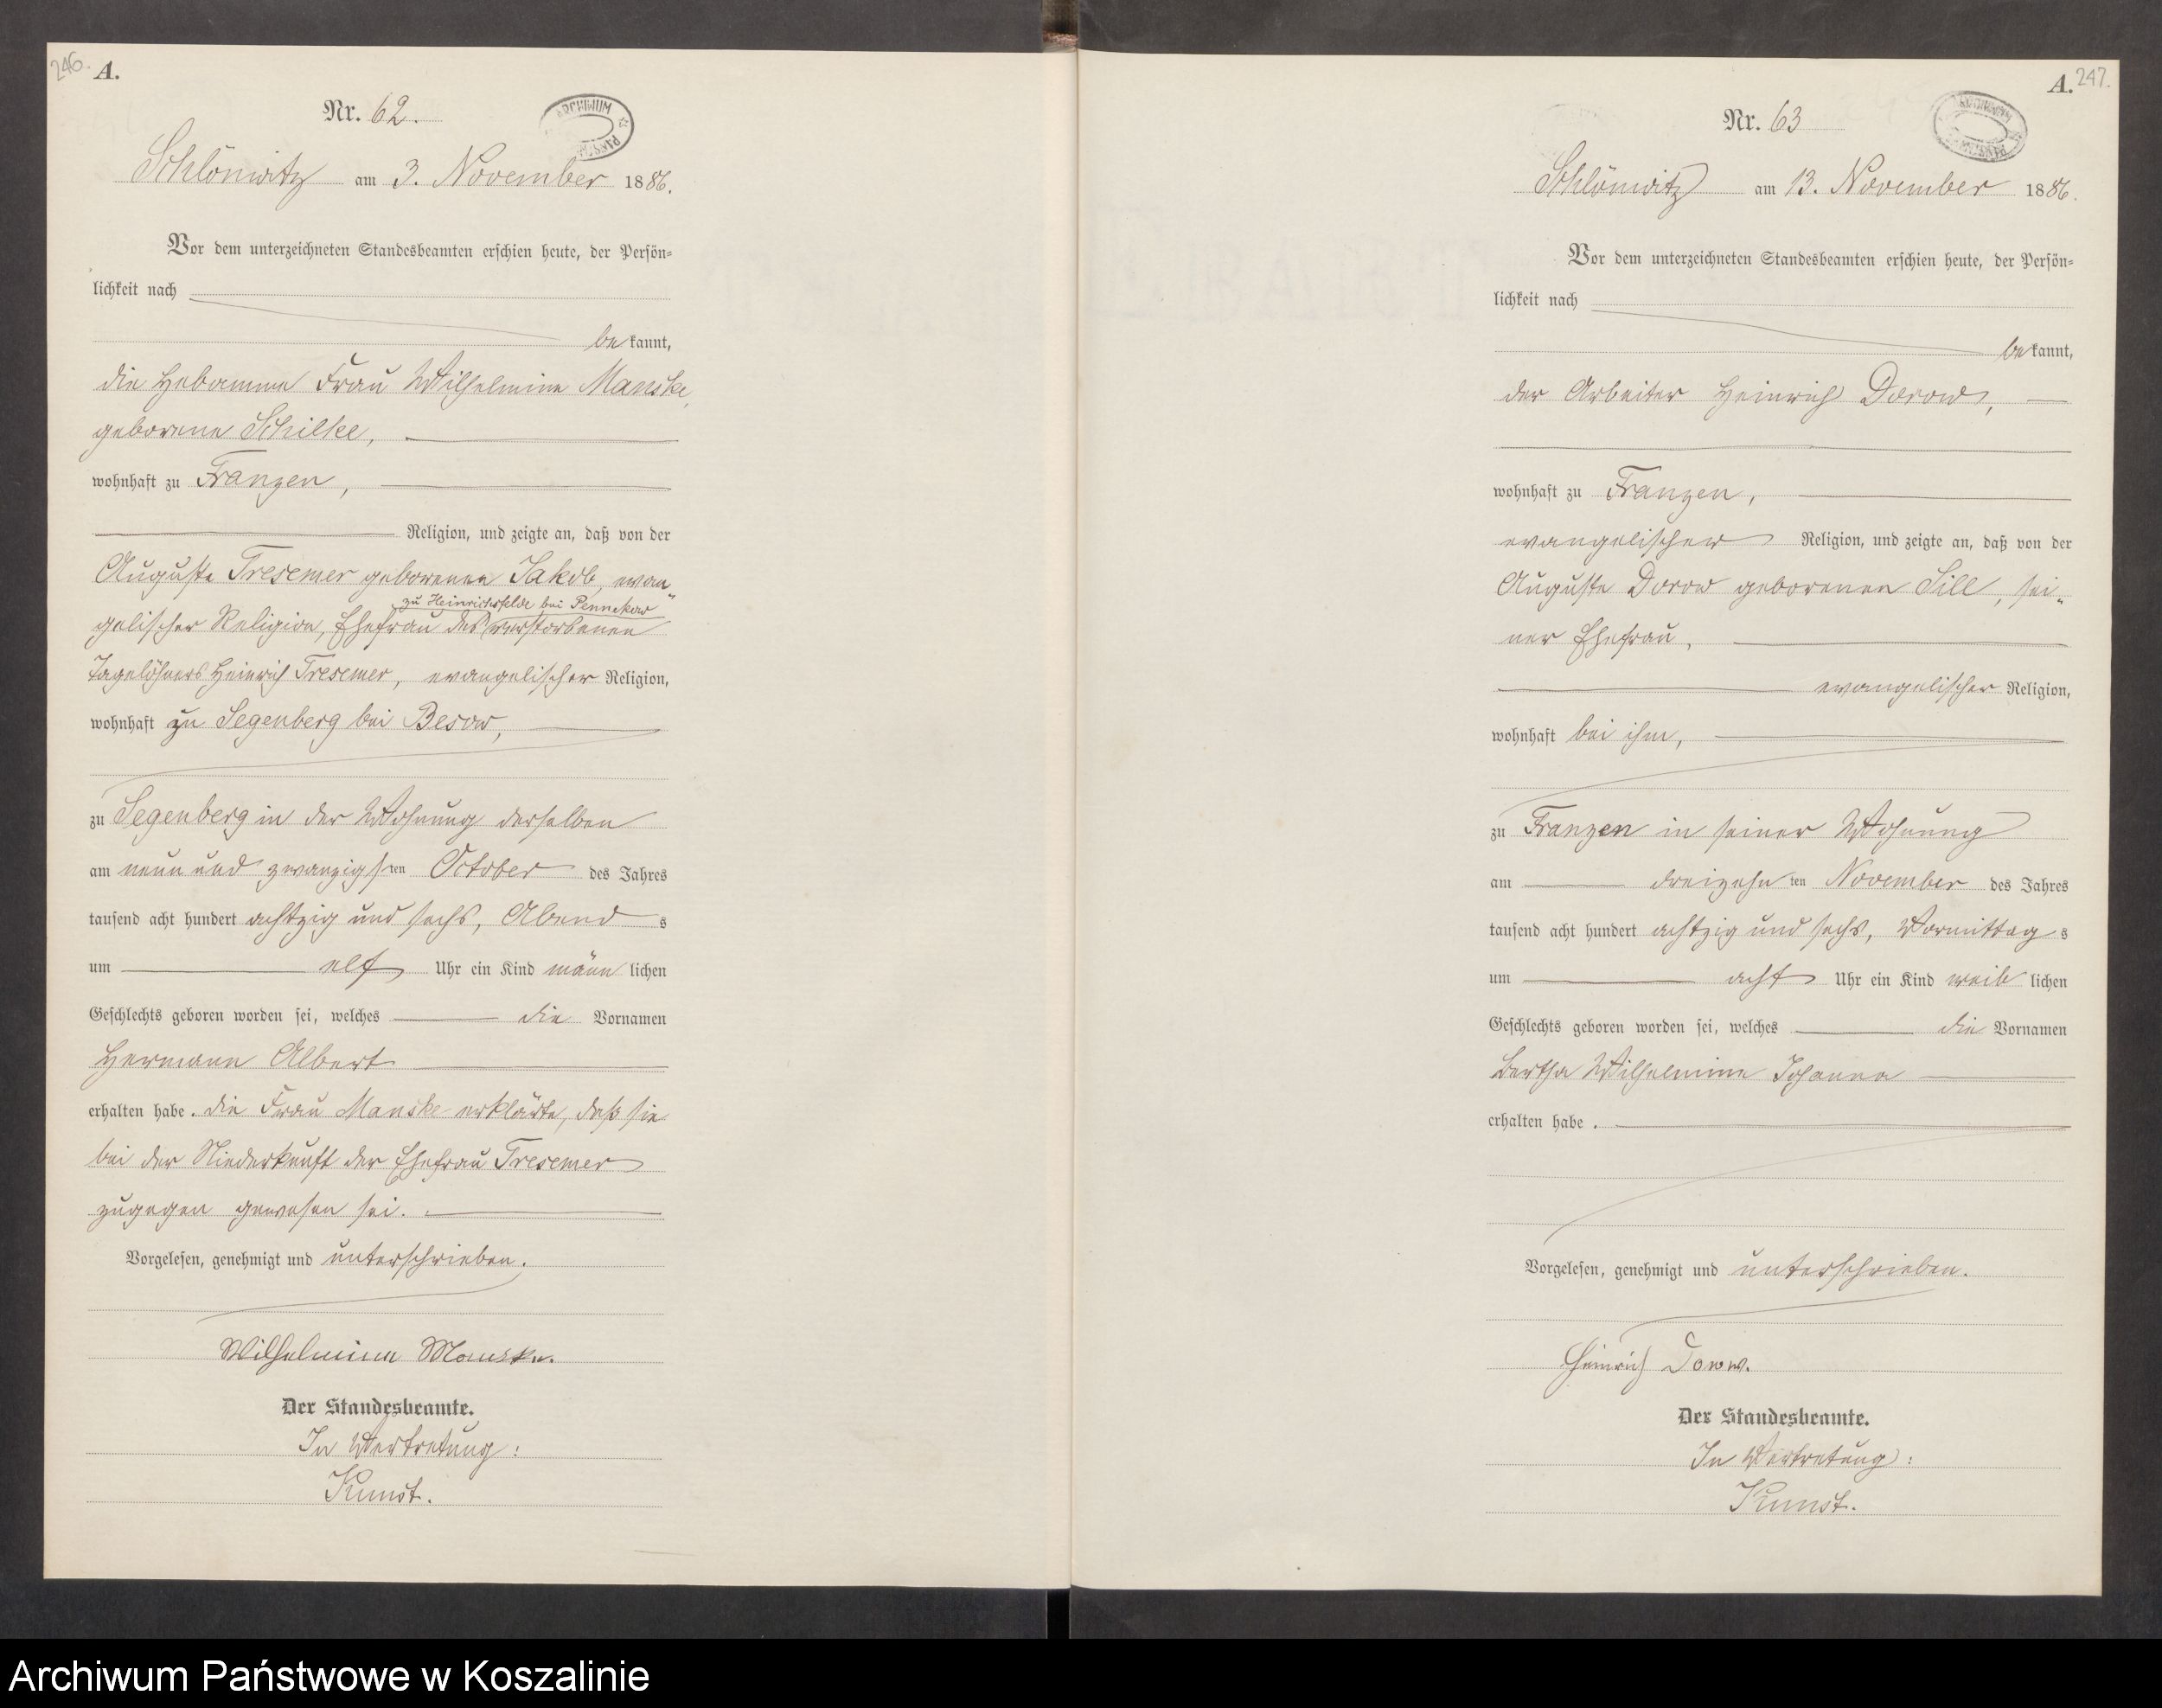 246.
A.
Nr. 62.
ARCHIWUM
Schlönwitz am 3. November 1886.
Vor dem unterzeichneten Standesbeamten erschien heute, der Persön=
lichkeit nach
bekannt,
die Hebamme Frau Wilhelmine Manske,
geborene Schilke,
wohnhaft zu Franzen,
Religion, und zeigte an, daß von der
Auguste Tresemer geborenen Jakob, evan„
zu Heinrichsfelde bei Pennekow
gelischer Religion, Ehefrau des verstorbenen
Tagelöhners Heinrich Tresemer, evangelischer Religion,
wohnhaft zu Segenberg bei Besow,
zu Segenberg in der Wohnung derselben
am neun und zwanzigsten October des Jahres
tausend acht hundert achtzig und sechs, Abends
um elf Uhr ein Kind männlichen
Geschlechts geboren worden sei, welches die Vornamen
Hermann Albert
erhalten habe. Die Frau Manske erklärte, daß sie
bei der Niederkunft der Ehefrau Tresemer
zugegen gewesen sei.
Vorgelesen, genehmigt und unterschrieben.
Wilhelmine Manske.
Der Standesbeamte.
In Vertretung:
Kunst.
A. 247.
Nr. 63
Schlönwitz am 13. November 1886.
Vor dem unterzeichneten Standesbeamten erschien heute, der Persön=
lichkeit nach
bekannt,
der Arbeiter Heinrich Dorow,
wohnhaft zu Franzen,
evangelischer Religion, und zeigte an, daß von der
Auguste Dorow geborenen Sill, sei„
ner Ehefrau,
evangelischer Religion,
wohnhaft bei ihm,
zu Franzen in seiner Wohnung
am dreizehnten November des Jahres
tausend acht hundert achtzig und sechs, Vormittags
um acht Uhr ein Kind weiblichen
Geschlechts geboren worden sei, welches die Vornamen
Bertha Wilhelmine Johanne
erhalten habe.
Vorgelesen, genehmigt und unterschrieben.
Heinrich Dorow.
Der Standesbeamte.
In Vertretung:
Kunst.
Archiwum Państwowe w Koszalinie